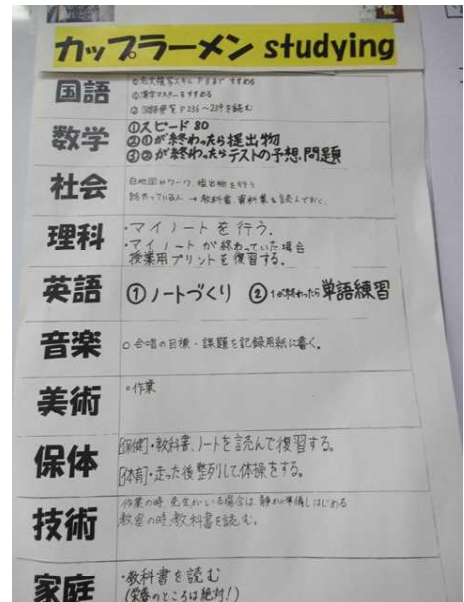 カップラーメン studying
国語
②漢字マスターをすすめる
③国語便覧 P236～239を読む
数学
①スピード80
②①が終わったら提出物
③②が終わったらテストの予想問題
社会
白地図やワーク、提出物を行う
終わっている人 → 教科書、資料集を読んでおく。
理科
・マイノートを行う.
・マイノートが終わっていた場合
授業用プリントを復習する。
英語
①ノートづくり ②1が終わったら単語練習
音楽
○合唱の目標・課題を記録用紙に書く。
美術
・作業
保体
[保健]・教科書、ノートを読んで復習する。
[体育]・走った後整列して体操をする。
技術
作業の時 先生がいる場合は 静かに準備しはじめる
教室の時 教科書を読む。
家庭
・教科書を読む
(栄養のところは絶対!)